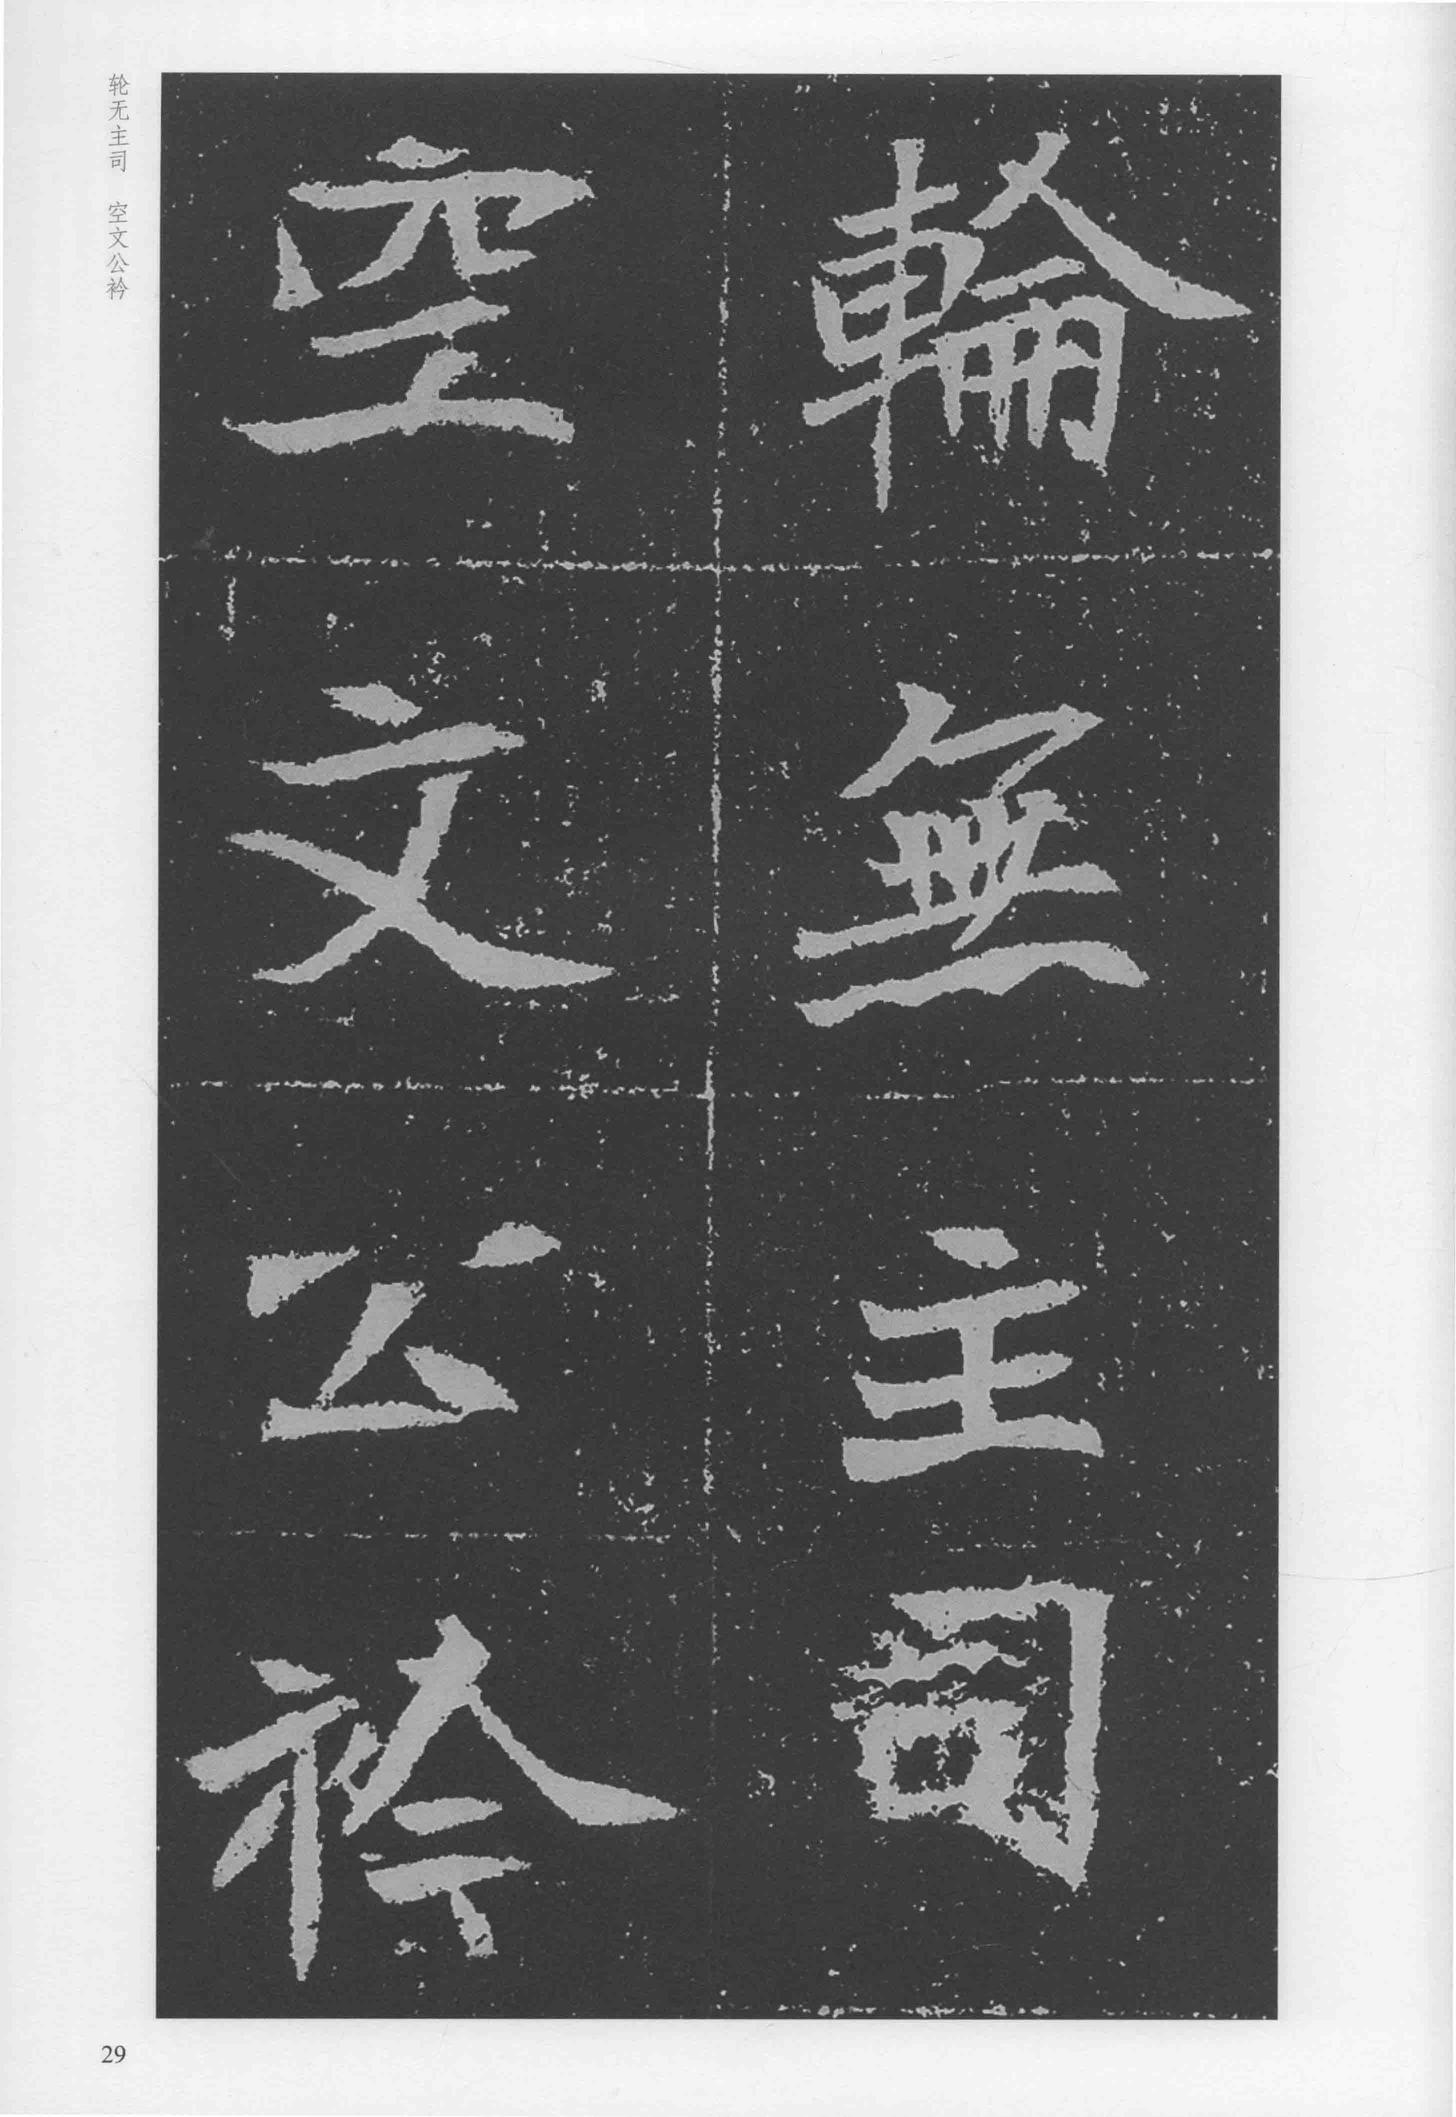 輪無主司
空文公衿
轮无主司 空文公衿
29